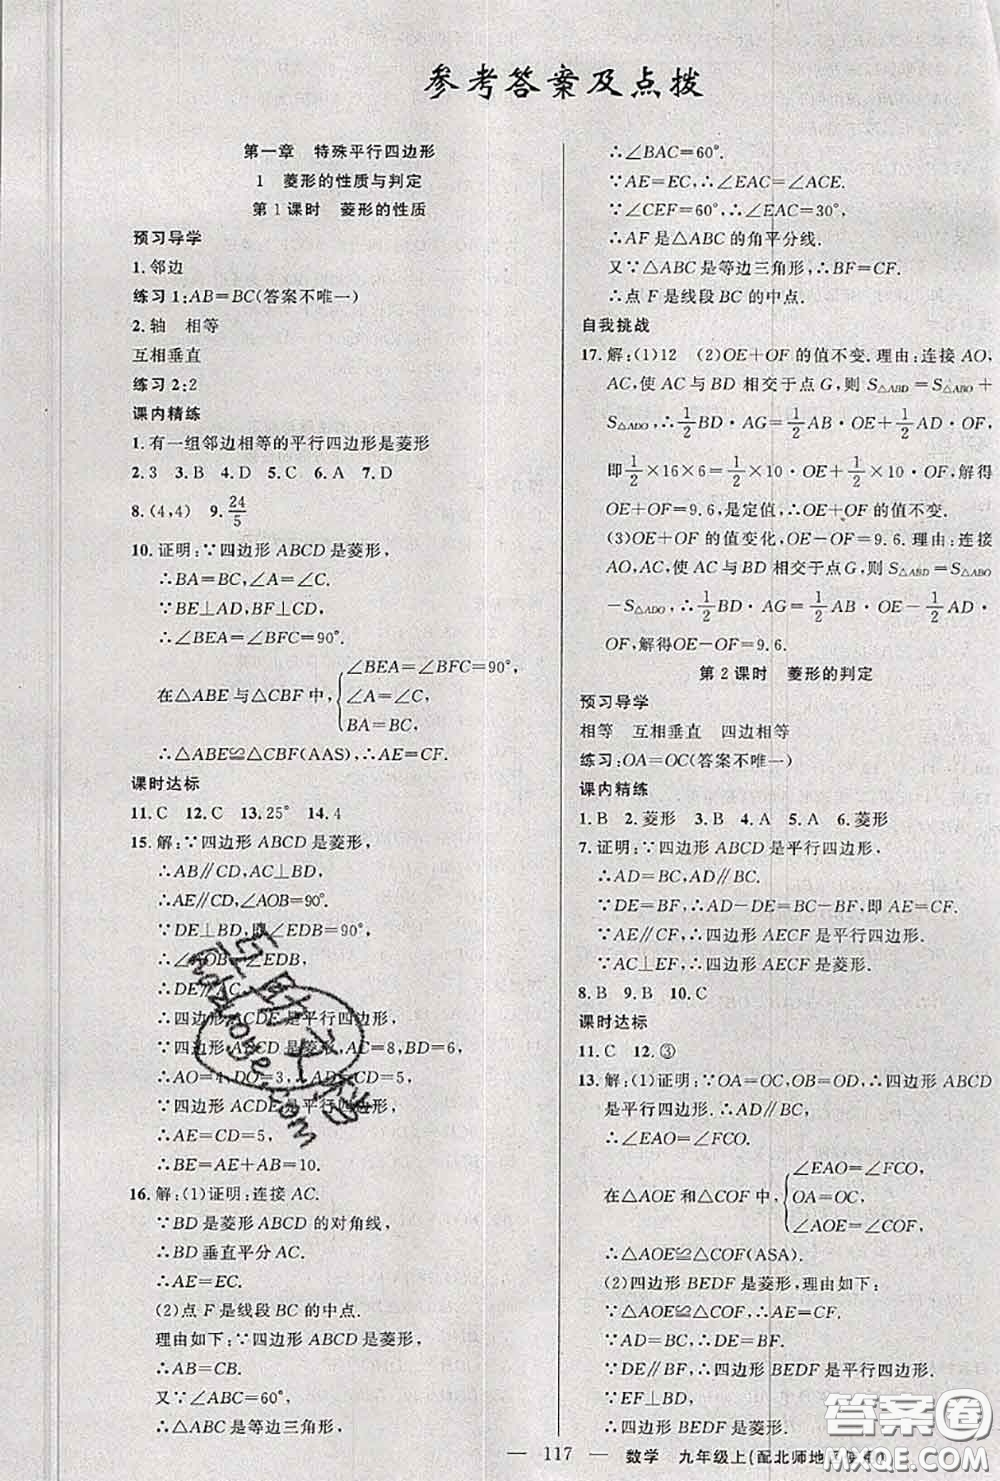 参考答案及点拨
第一章 特殊平行四边形
1 菱形的性质与判定
第1课时 菱形的性质
预习导学
1.邻边
练习1:AB=BC(答案不唯一)
2.轴 相等
互相垂直
练习2:2
课内精练
1.有一组邻边相等的平行四边形是菱形
2.3 3.B 4.D 5.C 6.A 7.D
8.(4,4) 9.24/5
10.证明:∵四边形ABCD是菱形,
∴BA=BC,∠A=∠C.
∵BE⊥AD,BF⊥CD,
∴∠BEA=∠BFC=90°.
在△ABE与△CBF中,{∠BEA=∠BFC=90°,
∠A=∠C,
BA=BC,
∴△ABE≌△CBF(AAS),∴AE=CF.
课时达标
11.C 12.C 13.25° 14.4
15.解:∵四边形ABCD是菱形,
∴AB∥CD,AC⊥BD,
∴AE∥CD,∠AOB=90°.
∵DE⊥BD,即∠EDB=90°,
∴∠AOB=∠EDB,
∴DE∥AC,
∴四边形ACDE是平行四边形,
∵四边形ABCD是菱形,AC=8,BD=6,
∴AO=4,DO=3,AD=CD=5,
∵四边形ACDE是平行四边形,
∴AE=CD=5,
∴BE=AE+AB=10.
16.解:(1)证明:连接AC.
∵BD是菱形ABCD的对角线,
∴BD垂直平分AC.
∴AE=EC.
(2)点F是线段BC的中点.
理由如下:∵四边形ABCD是菱形,
∴AB=CB.
又∵∠ABC=60°,
∴△ABC是等边三角形,
∴∠BAC=60°.
∵AE=EC,∴∠EAC=∠ACE.
∵∠CEF=60°,∴∠EAC=30°,
∴AF是△ABC的角平分线.
又∵△ABC是等边三角形,∴BF=CF.
∴点F是线段BC的中点.
自我挑战
17.解:(1)12 (2)OE+OF的值不变.理由:连接AO,
AC,使AC与BD相交于点G,则S△ABD=S△ABO+
S△ADO,∴1/2BD·AG=1/2AB·OE+1/2AD·OF,
即1/2×16×6=1/2×10·OE+1/2×10·OF,解得
OE+OF=9.6,是定值,∴OE+OF的值不变.
(3)OE+OF的值变化,OE-OF=9.6.理由:连接
AO,AC,使AC与BD相交于点G,则S△ABD=S△ABO
-S△ADO,∴1/2BD·AG=1/2AB·OE-1/2AD·
OF,解得OE-OF=9.6.
第2课时 菱形的判定
预习导学
相等 互相垂直 四边相等
练习:OA=OC(答案不唯一)
课内精练
1.B 2.菱形 3.B 4.A 5.A 6.菱形
7.证明:∵四边形ABCD是平行四边形,
∴AD=BC,AD∥BC.
∵DE=BF,∴AD-DE=BC-BF,即AE=CF.
∵AE∥CF,∴四边形AECF是平行四边形.
∵AC⊥EF,∴四边形AECF是菱形.
8.B 9.B 10.C
课时达标
11.C 12.③
13.解:(1)证明:∵OA=OC,OB=OD,∴四边形ABCD
是平行四边形.∴AD∥BC,
∴∠EAO=∠FCO.
在△AOE和△COF中,{∠EAO=∠FCO,
OA=OC,
∠AOE=∠COF,
∴△AOE≌△COF(ASA).
(2)四边形BEDF是菱形,理由如下:
∵△AOE≌△COF,∴AE=CF.
∵AD=BC,∴DE=BF.
∵DE∥BF,∴四边形BEDF是平行四边形.
∵EF⊥BD,
∴四边形BEDF是菱形.
— 117 — 数学 九年级上(配北师地
答案圈
MXQE.COM